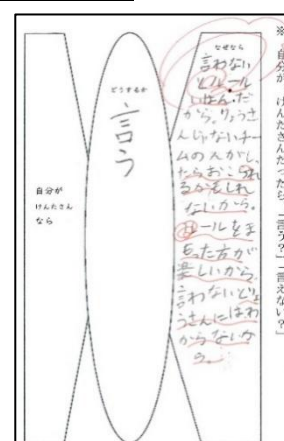 ※「自分が、けんたさんだったら、「言う？」「言えない？」
なぜなら
言わない
とルール
いはんだ
から。りょうさ
んじゃないチー
ムの人がし、
たらおこられ
るかもしれ
ないから。
ルールをま
もった方が
楽しいから。
言わないとりょ
うさんにはわ
からないか
ら。
どうするか
言う
自分が
けんたさん
なら